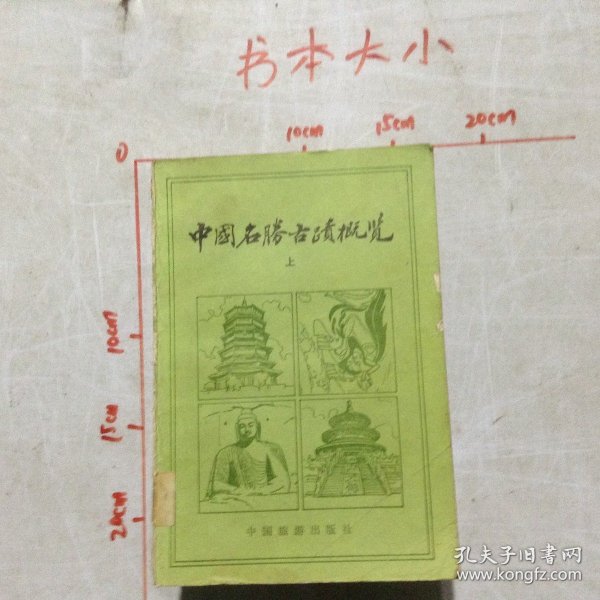 书本大小
10cm 15cm 20cm
0
中國名勝古蹟概览
上
10cm
15cm
20cm
中国旅游出版社
孔夫子旧书网
www.kongfz.com